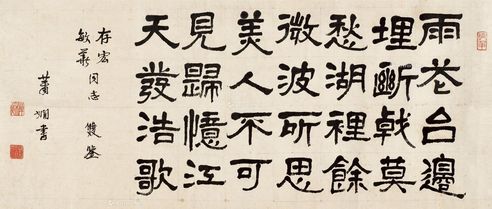 雨花台邊
埋斷戟莫
愁湖裡餘
微波所思
美人不可
見歸憶江
天發浩歌
存宏
敏蓀同志 雙鑒
蕭嫻書